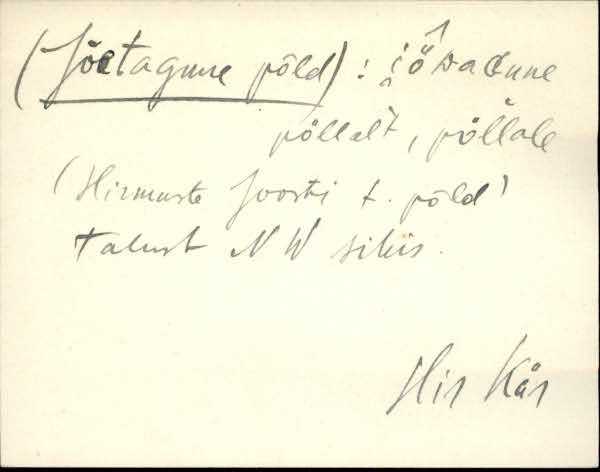 (Jõetagune põld) : i̯õwaɢune
põllalt, põllale
(Hirmuste Joosti t. põld)
talust NW sihis.
His Kär